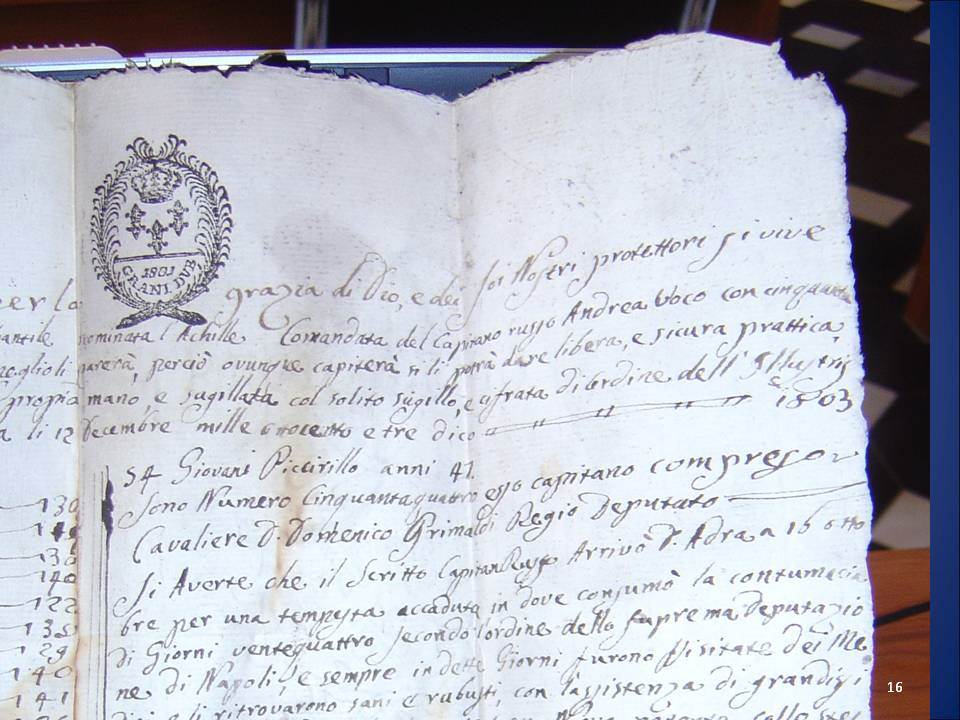 1801
GRANI DUE
per la grazia di Dio, e dei soi Nostri protettori si vive
nominata l'Achille Comandata del Capitano russo Andrea Voco con cinquanta
perciò ovunque capiterà si li potrà dare libera, e sicura prattica,
propia mano, e sugillata col solito sugillo, e cifrata di ordine dell' Illustris
a li 12 Decembre mille ottocento e tre dico 1803
54 Giovani Piccirillo anni 41
sono Numero Cinquantaquattro esso capitano compreso
Cavaliere D. Domenico Grimaldi Regio Deputato
Si Averte che il Scritto Capitan Russo Arrivò D. Adra a 16 otto
bre per una tempesta accaduta in dove consumò la contumacia
di Giorni ventequattro secondo l'ordine dello suprema Deputazio
ne di Napoli, e sempre in dette Giorni furono Visitate dei Me
dici e li ritrovarono sani e rubusti, con l'assistenza di grandissi
130
130
140
122
135
129
140
141
16